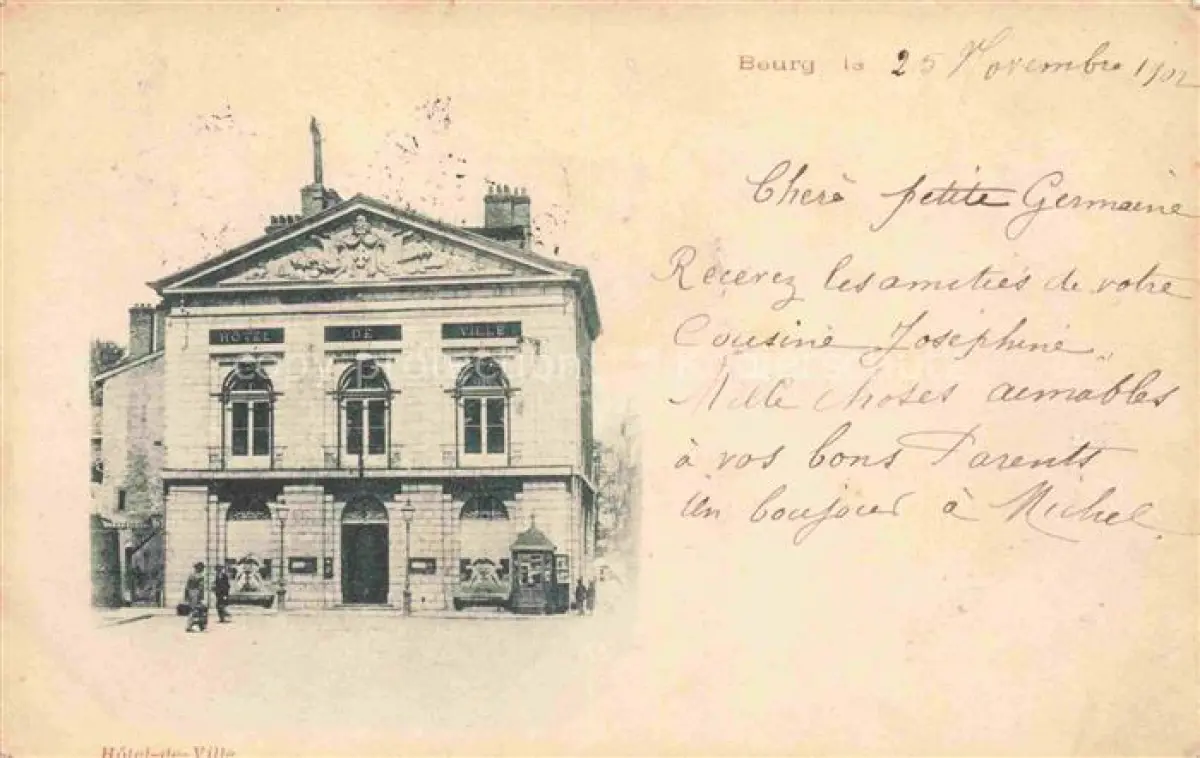 Bourg le 25 Novembre 1902
Chère petite Germaine
Recevez les amitiés de votre
Cousine Joséphine
Mille choses aimables
à vos bons Parents
Un bonjour à Michel
HOTEL DE VILLE
Hôtel-de-Ville